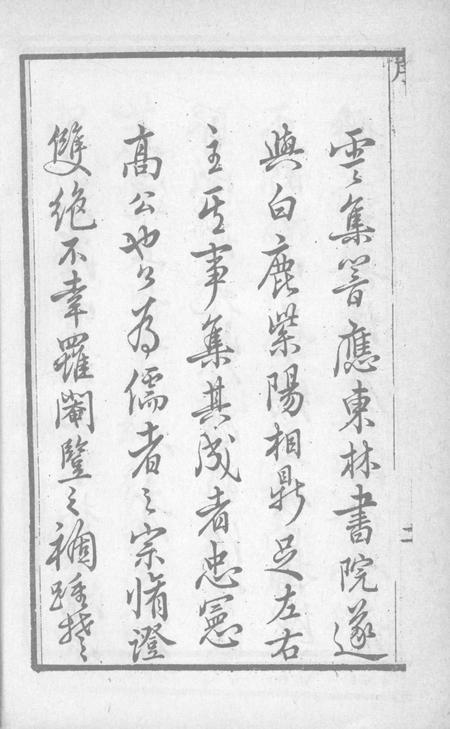 雲集響應東林書院遂
與白鹿紫陽相鼎足左右
主其事集其成者忠憲
高公也公為儒者之宗脩證
雙絕不幸羅閹豎之禍踵